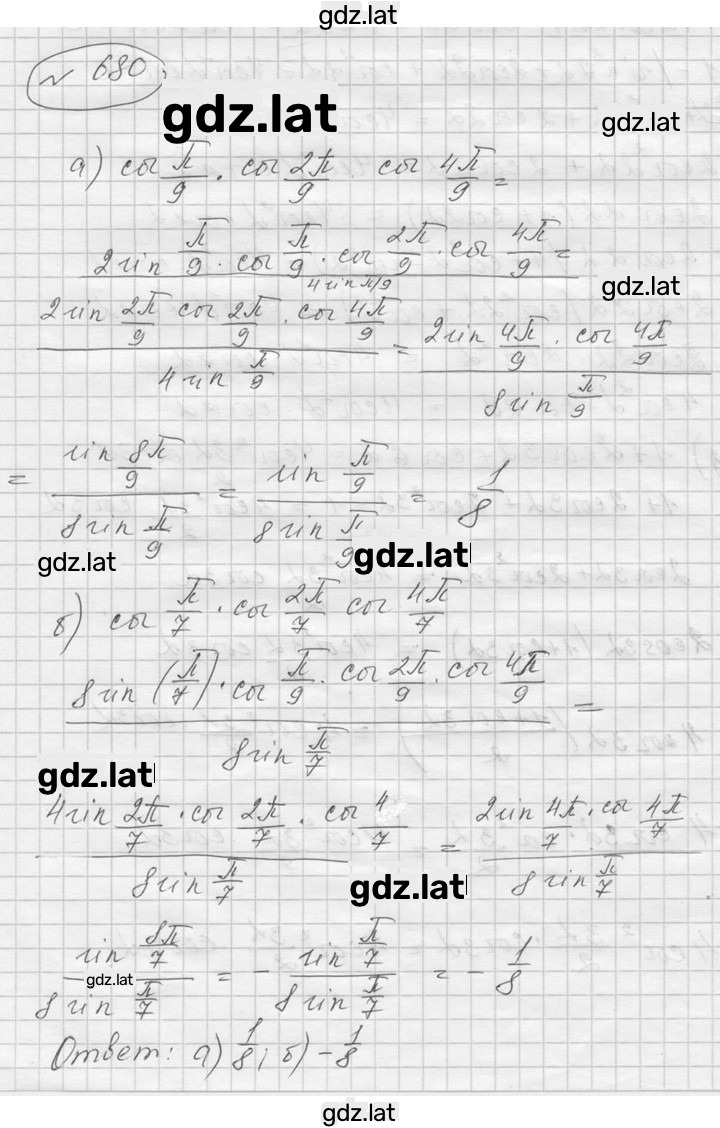 gdz.lat
№ 680
gdz.lat
gdz.lat
а) cos π/9 · cos 2π/9 · cos 4π/9 =
2sin π/9 · cos π/9 · cos 2π/9 · cos 4π/9 =
4sin π/9
gdz.lat
2sin 2π/9 cos 2π/9 · cos 4π/9 / 4sin π/9 = 2sin 4π/9 · cos 4π/9 / 8sin π/9
= sin 8π/9 / 8sin π/9 = sin π/9 / 8sin π/9 = 1/8
gdz.lat
gdz.lat
б) cos π/7 · cos 2π/7 cos 4π/7
8sin (π/7) · cos π/9 · cos 2π/9 · cos 4π/9 / 8sin π/7 =
gdz.lat
4sin 2π/7 · cos 2π/7 · cos 4/7 / 8sin π/7 = 2sin 4π/7 · cos 4π/7 / 8sin π/7
gdz.lat
sin 8π/7 / 8sin π/7 = - sin π/7 / 8sin π/7 = - 1/8
gdz.lat
Ответ: а) 1/8; б) -1/8
gdz.lat